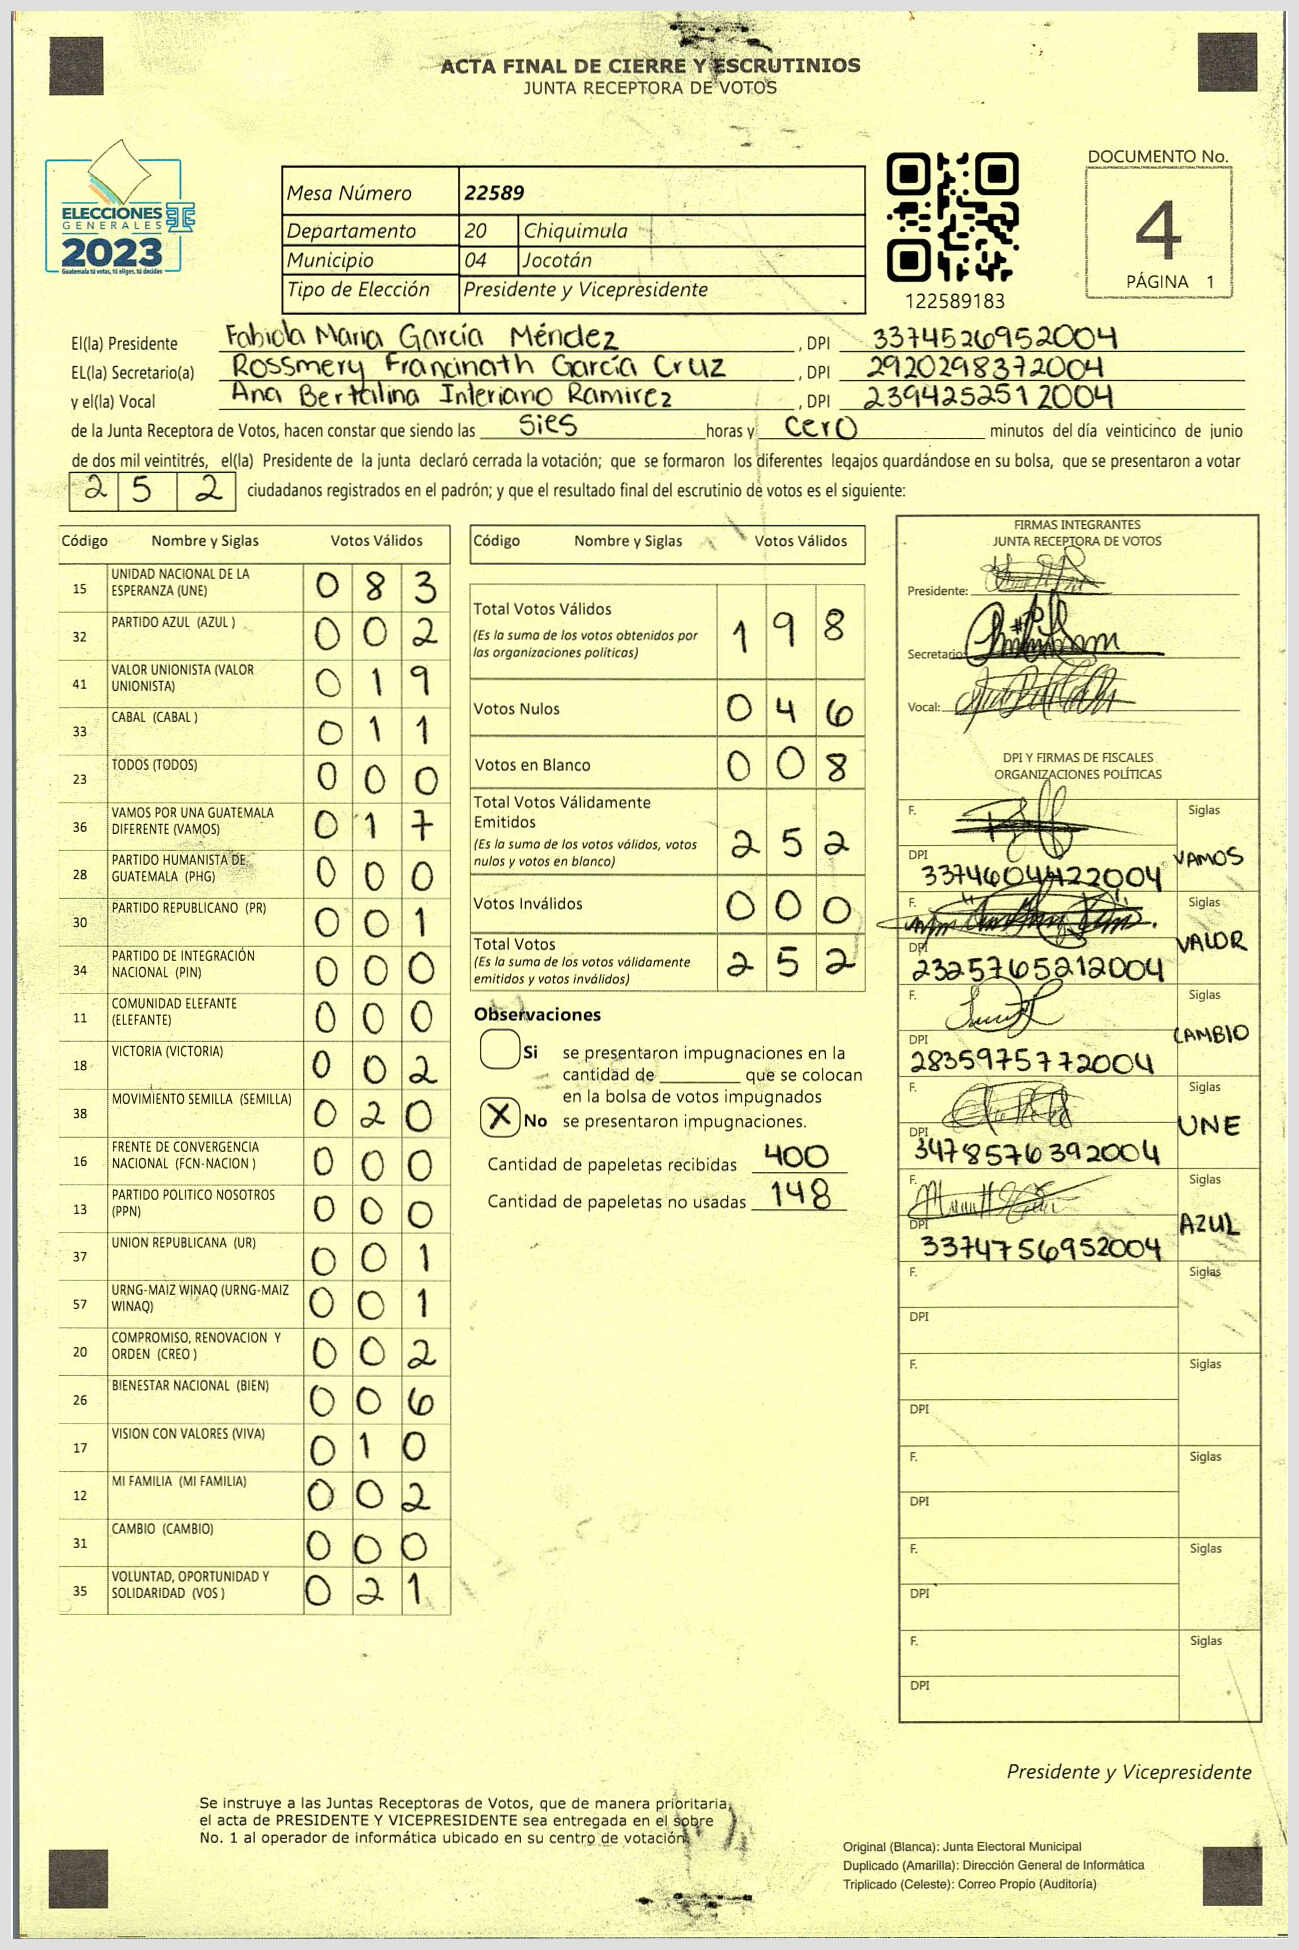 ACTA FINAL DE CIERRE Y ESCRUTINIOS
JUNTA RECEPTORA DE VOTOS
ELECCIONES
GENERALES
2023
Guatemala tú votas, tú eliges, tú decides
Mesa Número 22589
Departamento 20 Chiquimula
Municipio 04 Jocotán
Tipo de Elección Presidente y Vicepresidente
122589183
DOCUMENTO No.
4
PÁGINA 1
El(la) Presidente Fabiola Maria García Méndez , DPI 3374526952004
EL(la) Secretario(a) Rossmery Francinath García Cruz , DPI 2920298372004
y el(la) Vocal Ana Bertalina Interiano Ramirez , DPI 2394252512004
de la Junta Receptora de Votos, hacen constar que siendo las sies horas y cero minutos del día veinticinco de junio
de dos mil veintitrés, el(la) Presidente de la junta declaró cerrada la votación; que se formaron los diferentes legajos guardándose en su bolsa, que se presentaron a votar
2 5 2 ciudadanos registrados en el padrón; y que el resultado final del escrutinio de votos es el siguiente:
Código Nombre y Siglas Votos Válidos
15 UNIDAD NACIONAL DE LA
ESPERANZA (UNE) 0 8 3
32 PARTIDO AZUL (AZUL ) 0 0 2
41 VALOR UNIONISTA (VALOR
UNIONISTA) 0 1 9
33 CABAL (CABAL ) 0 1 1
23 TODOS (TODOS) 0 0 0
36 VAMOS POR UNA GUATEMALA
DIFERENTE (VAMOS) 0 1 7
28 PARTIDO HUMANISTA DE
GUATEMALA (PHG) 0 0 0
30 PARTIDO REPUBLICANO (PR) 0 0 1
34 PARTIDO DE INTEGRACIÓN
NACIONAL (PIN) 0 0 0
11 COMUNIDAD ELEFANTE
(ELEFANTE) 0 0 0
18 VICTORIA (VICTORIA) 0 0 2
38 MOVIMIENTO SEMILLA (SEMILLA) 0 2 0
16 FRENTE DE CONVERGENCIA
NACIONAL (FCN-NACION ) 0 0 0
13 PARTIDO POLITICO NOSOTROS
(PPN) 0 0 0
37 UNION REPUBLICANA (UR) 0 0 1
57 URNG-MAIZ WINAQ (URNG-MAIZ
WINAQ) 0 0 1
20 COMPROMISO, RENOVACION Y
ORDEN (CREO ) 0 0 2
26 BIENESTAR NACIONAL (BIEN) 0 0 6
17 VISION CON VALORES (VIVA) 0 1 0
12 MI FAMILIA (MI FAMILIA) 0 0 2
31 CAMBIO (CAMBIO) 0 0 0
35 VOLUNTAD, OPORTUNIDAD Y
SOLIDARIDAD (VOS ) 0 2 1
Código Nombre y Siglas Votos Válidos
Total Votos Válidos 1 9 8
(Es la suma de los votos obtenidos por
las organizaciones políticas)
Votos Nulos 0 4 6
Votos en Blanco 0 0 8
Total Votos Válidamente
Emitidos 2 5 2
(Es la suma de los votos válidos, votos
nulos y votos en blanco)
Votos Inválidos 0 0 0
Total Votos 2 5 2
(Es la suma de los votos válidamente
emitidos y votos inválidos)
Observaciones
Si se presentaron impugnaciones en la
cantidad de ________ que se colocan
en la bolsa de votos impugnados
X No se presentaron impugnaciones.
Cantidad de papeletas recibidas 400
Cantidad de papeletas no usadas 148
FIRMAS INTEGRANTES
JUNTA RECEPTORA DE VOTOS
Presidente:
Secretario:
Vocal:
DPI Y FIRMAS DE FISCALES
ORGANIZACIONES POLÍTICAS
F. Siglas
DPI 3374604422004 VAMOS
F. Siglas
DPI 2325765212004 VALOR
F. Siglas
DPI 2835975772004 CAMBIO
F. Siglas
DPI 3478576392004 UNE
F. Siglas
DPI 3374756952004 AZUL
F. Siglas
DPI
F. Siglas
DPI
F. Siglas
DPI
F. Siglas
DPI
F. Siglas
DPI
Presidente y Vicepresidente
Se instruye a las Juntas Receptoras de Votos, que de manera prioritaria,
el acta de PRESIDENTE Y VICEPRESIDENTE sea entregada en el sobre
No. 1 al operador de informática ubicado en su centro de votación.
Original (Blanca): Junta Electoral Municipal
Duplicado (Amarilla): Dirección General de Informática
Triplicado (Celeste): Correo Propio (Auditoría)